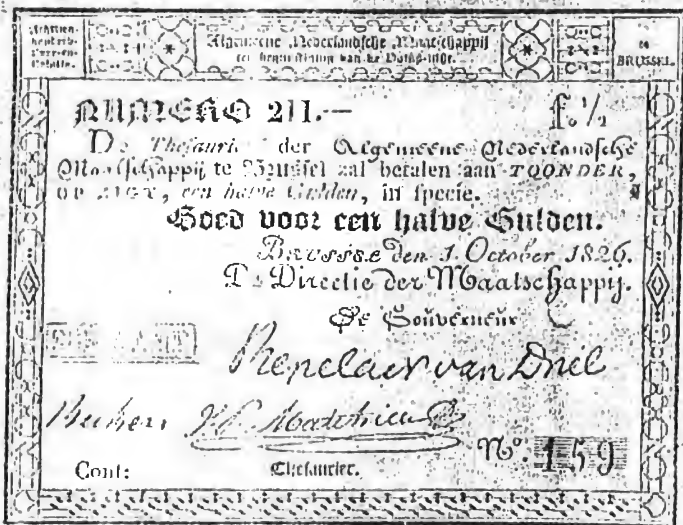 Algemeene Nederlandsche Maatschappij
ter begunstiging van de Volks-vlijt.
te
BRUSSEL.
NUMERO 211.— f. 1/2
De Thesaurier der Algemeene Nederlandsche
Maatschappij te Brussel zal betalen aan TOONDER,
OP ZIGT, een halve Gulden, in specie.
Goed voor een halve Gulden.
Brussel den 1 October 1826.
De Directie der Maatschappij.
De Gouverneur
Repelaer van Driel
Cont: Thesaurier.
No. 159